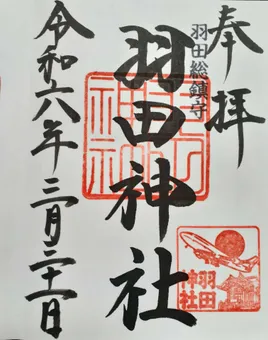 奉拝
羽田総鎮守
羽田神社
令和六年三月二十一日
羽田
神社